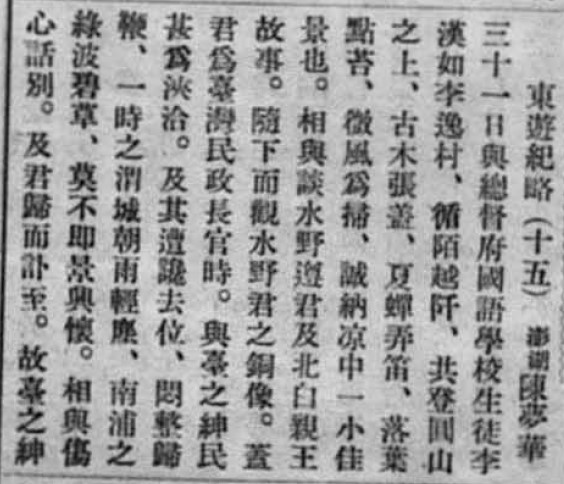 東遊紀略(十五) 澎湖陳夢華
三十一日與總督府國語學校生徒李
漢如李逸村、循陌越阡、共登圓山
之上、古木張蓋、夏蟬弄笛、落葉
點苔、微風爲掃、誠納凉中一小佳
景也。相與談水野遵君及北白親王
故事。隨下而觀水野君之銅像。蓋
君爲臺灣民政長官時。與臺之紳民
甚爲浹洽。及其遭讒去位、悶整歸
鞭、一時之渭城朝雨輕塵、南浦之
綠波碧草、莫不即景興懷。相與傷
心話別。及君歸而訃至。故臺之紳